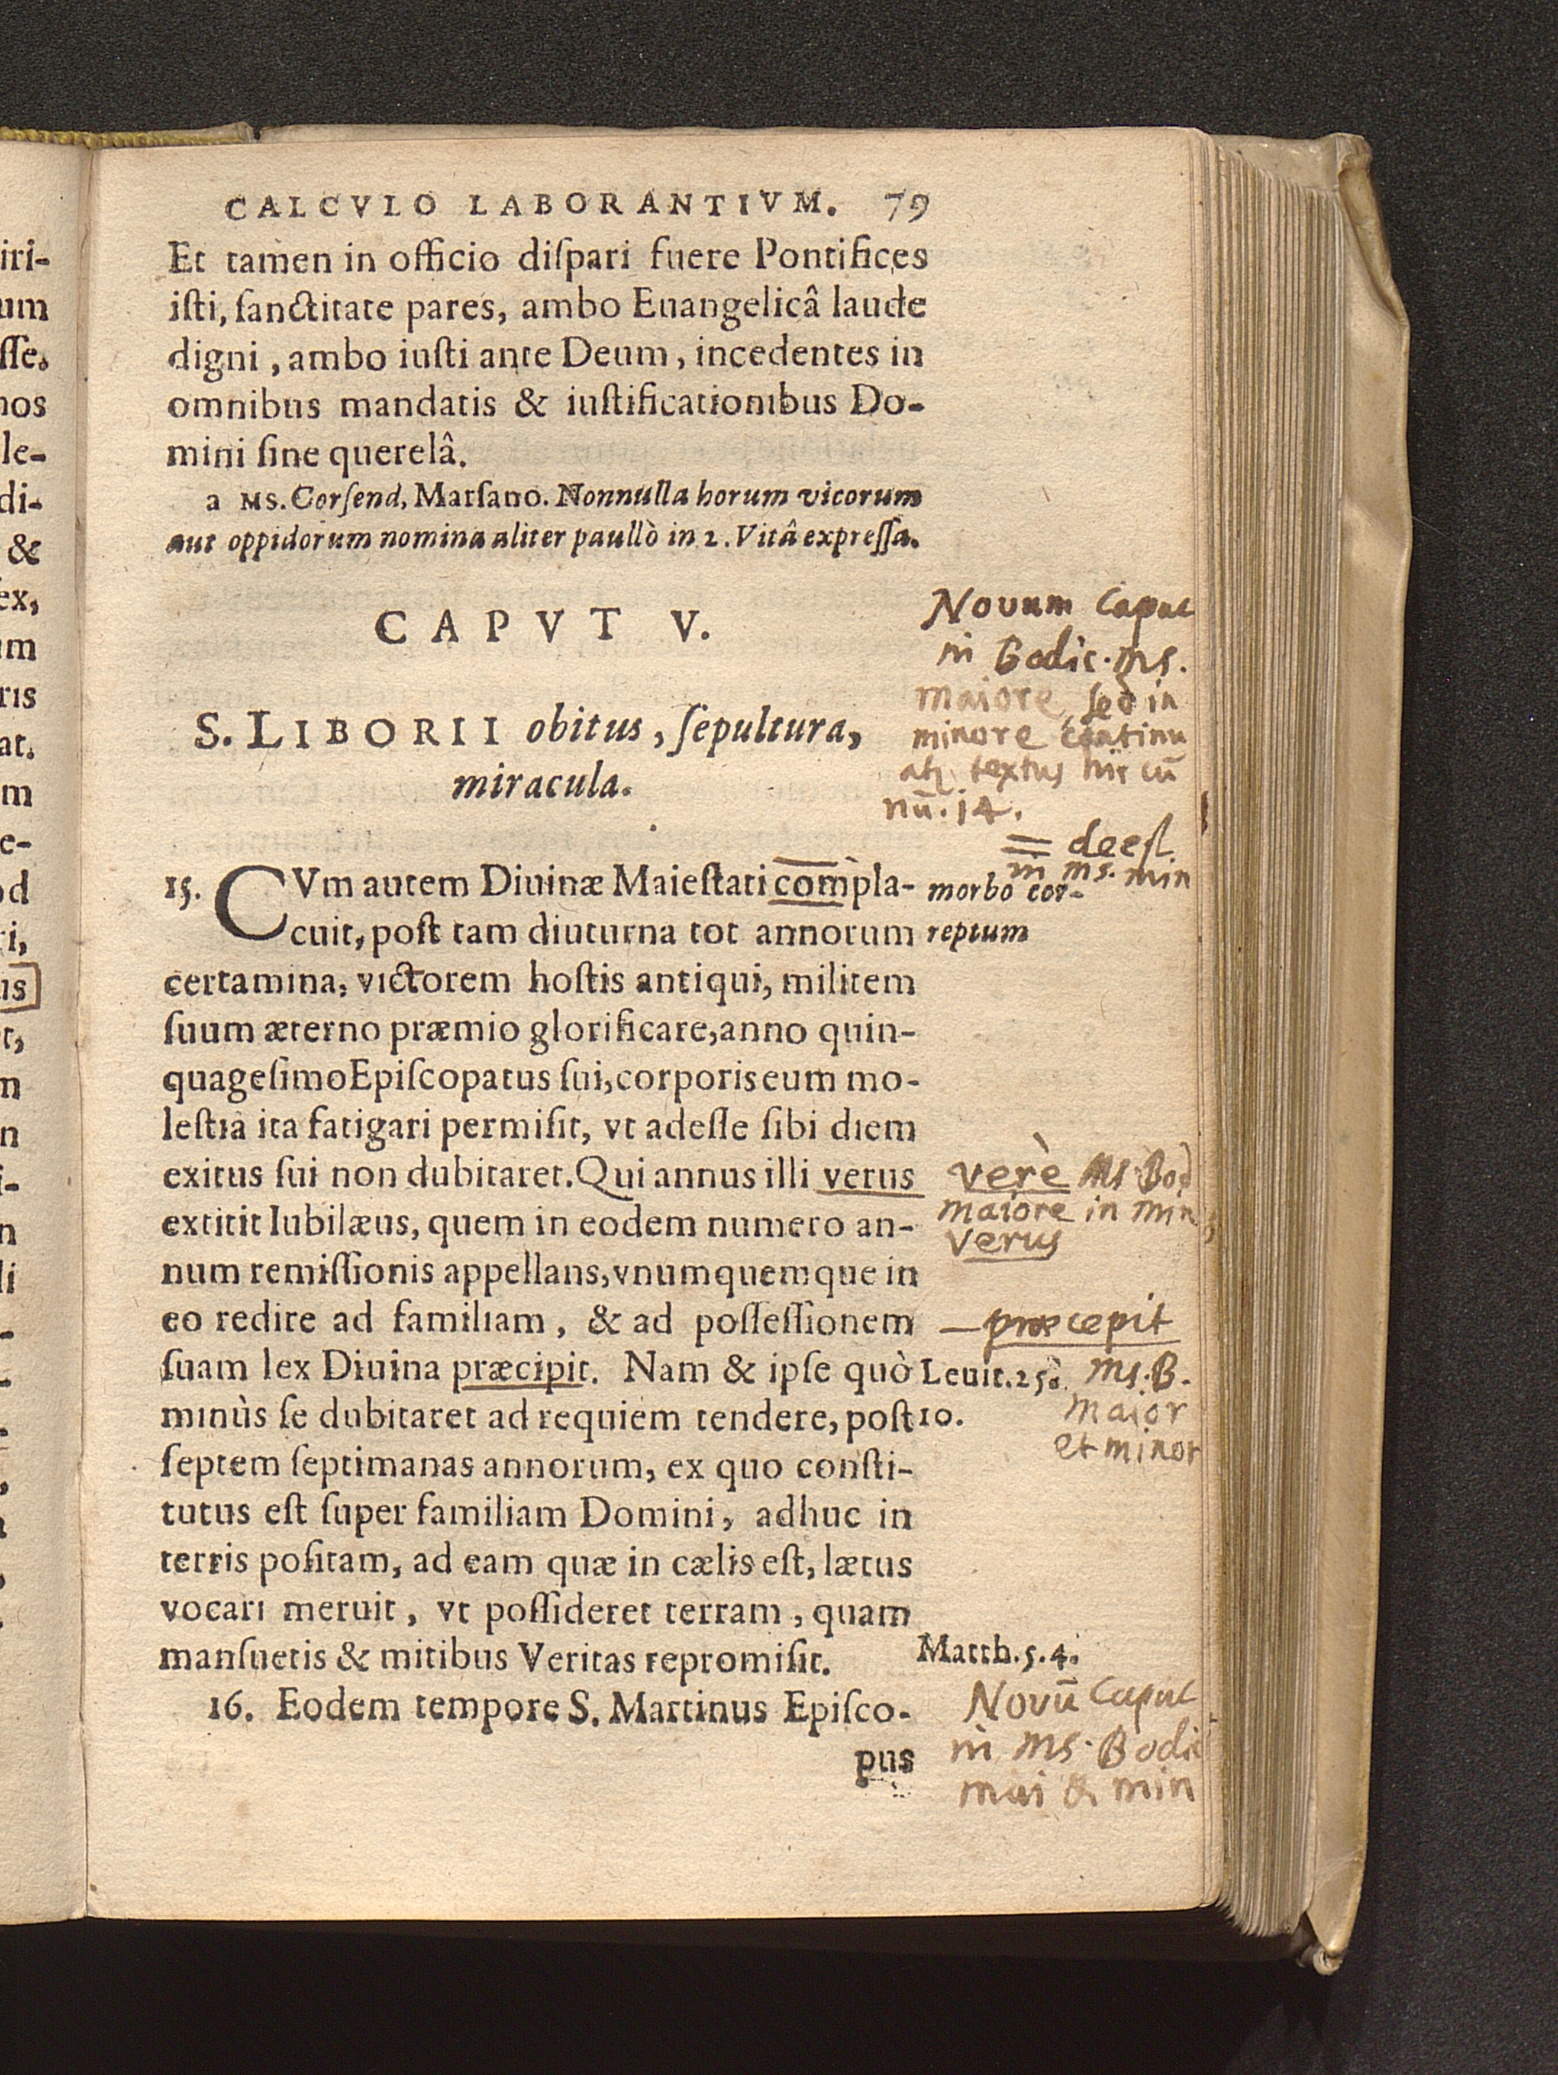 CALCVLO LABORANTIVM. 79
Et tamen in officio diſpari fuere Pontifices
iſti, ſanctitate pares, ambo Euangelicâ laude
digni, ambo iuſti ante Deum, incedentes in
omnibus mandatis & iuſtificationibus Do-
mini ſine querelâ.
a MS. Corſend, Marſano. Nonnulla horum vicorum
aut oppidorum nomina aliter paullò in 2. Vitâ expreſſa.
CAPVT V.
Novum Caput
in Bodic. ms.
maiore, sed in
minore continu
atq textus hic cū
nū. 14.
S. LIBORII obitus, ſepultura,
miracula.
= deest
in ms. min
15. CVm autem Diuinæ Maieſtati compla-
morbo cor-
cuit, poſt tam diuturna tot annorum
reptum
certamina, victorem hoſtis antiqui, militem
ſuum æterno præmio glorificare, anno quin-
quageſimo Epiſcopatus ſui, corporis eum mo-
leſtia ita fatigari permiſit, vt adeſſe ſibi diem
exitus ſui non dubitaret. Qui annus illi verus
verè Ms. Bod
maiore in min
verus
extitit Iubilæus, quem in eodem numero an-
num remiſſionis appellans, vnumquemque in
eo redire ad familiam, & ad poſſeſſionem
— præcepit
Ms. B.
maior
et minor
ſuam lex Diuina præcipit. Nam & ipſe quò
Leuit. 25.
minùs ſe dubitaret ad requiem tendere, poſt
10.
ſeptem ſeptimanas annorum, ex quo conſti-
tutus eſt ſuper familiam Domini, adhuc in
terris poſitam, ad eam quæ in cælis eſt, lætus
vocari meruit, vt poſſideret terram, quam
manſuetis & mitibus Veritas repromiſit.
Matth. 5. 4.
16. Eodem tempore S. Martinus Epiſco-
pus
Novū Caput
in Ms. Bodic
mai & min